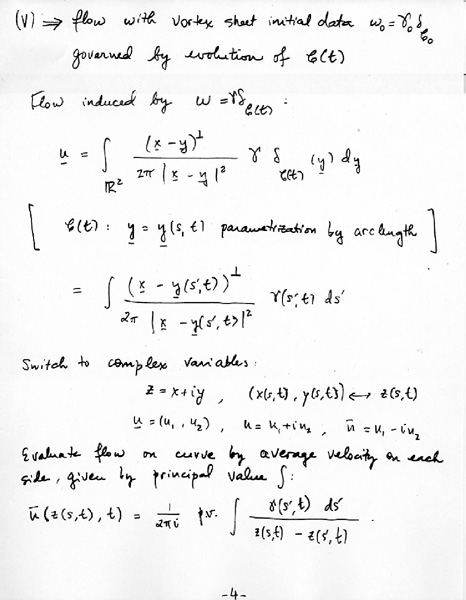 (V) ⇒ flow with vortex sheet initial data ω₀ = γ₀ δ_{𝒞₀}
governed by evolution of 𝒞(t)
Flow induced by ω = γδ_{𝒞(t)} :
u = ∫_{ℝ²} (x - y)^⊥ / 2π |x - y|² γ δ_{𝒞(t)} (y) dy
[ 𝒞(t) : y = y(s, t) parametrization by arc length ]
= ∫ (x - y(s',t))^⊥ / 2π |x - y(s',t)|² γ(s',t) ds'
Switch to complex variables:
z = x + iy , (x(s,t), y(s,t)) ↔ z(s,t)
u = (u₁, u₂) , u = u₁ + iu₂ , ū = u₁ - iu₂
Evaluate flow on curve by average velocity on each
side, given by principal value ∫ :
ū(z(s,t), t) = 1/2πi p.v. ∫ γ(s',t) ds' / z(s,t) - z(s',t) .
-4-